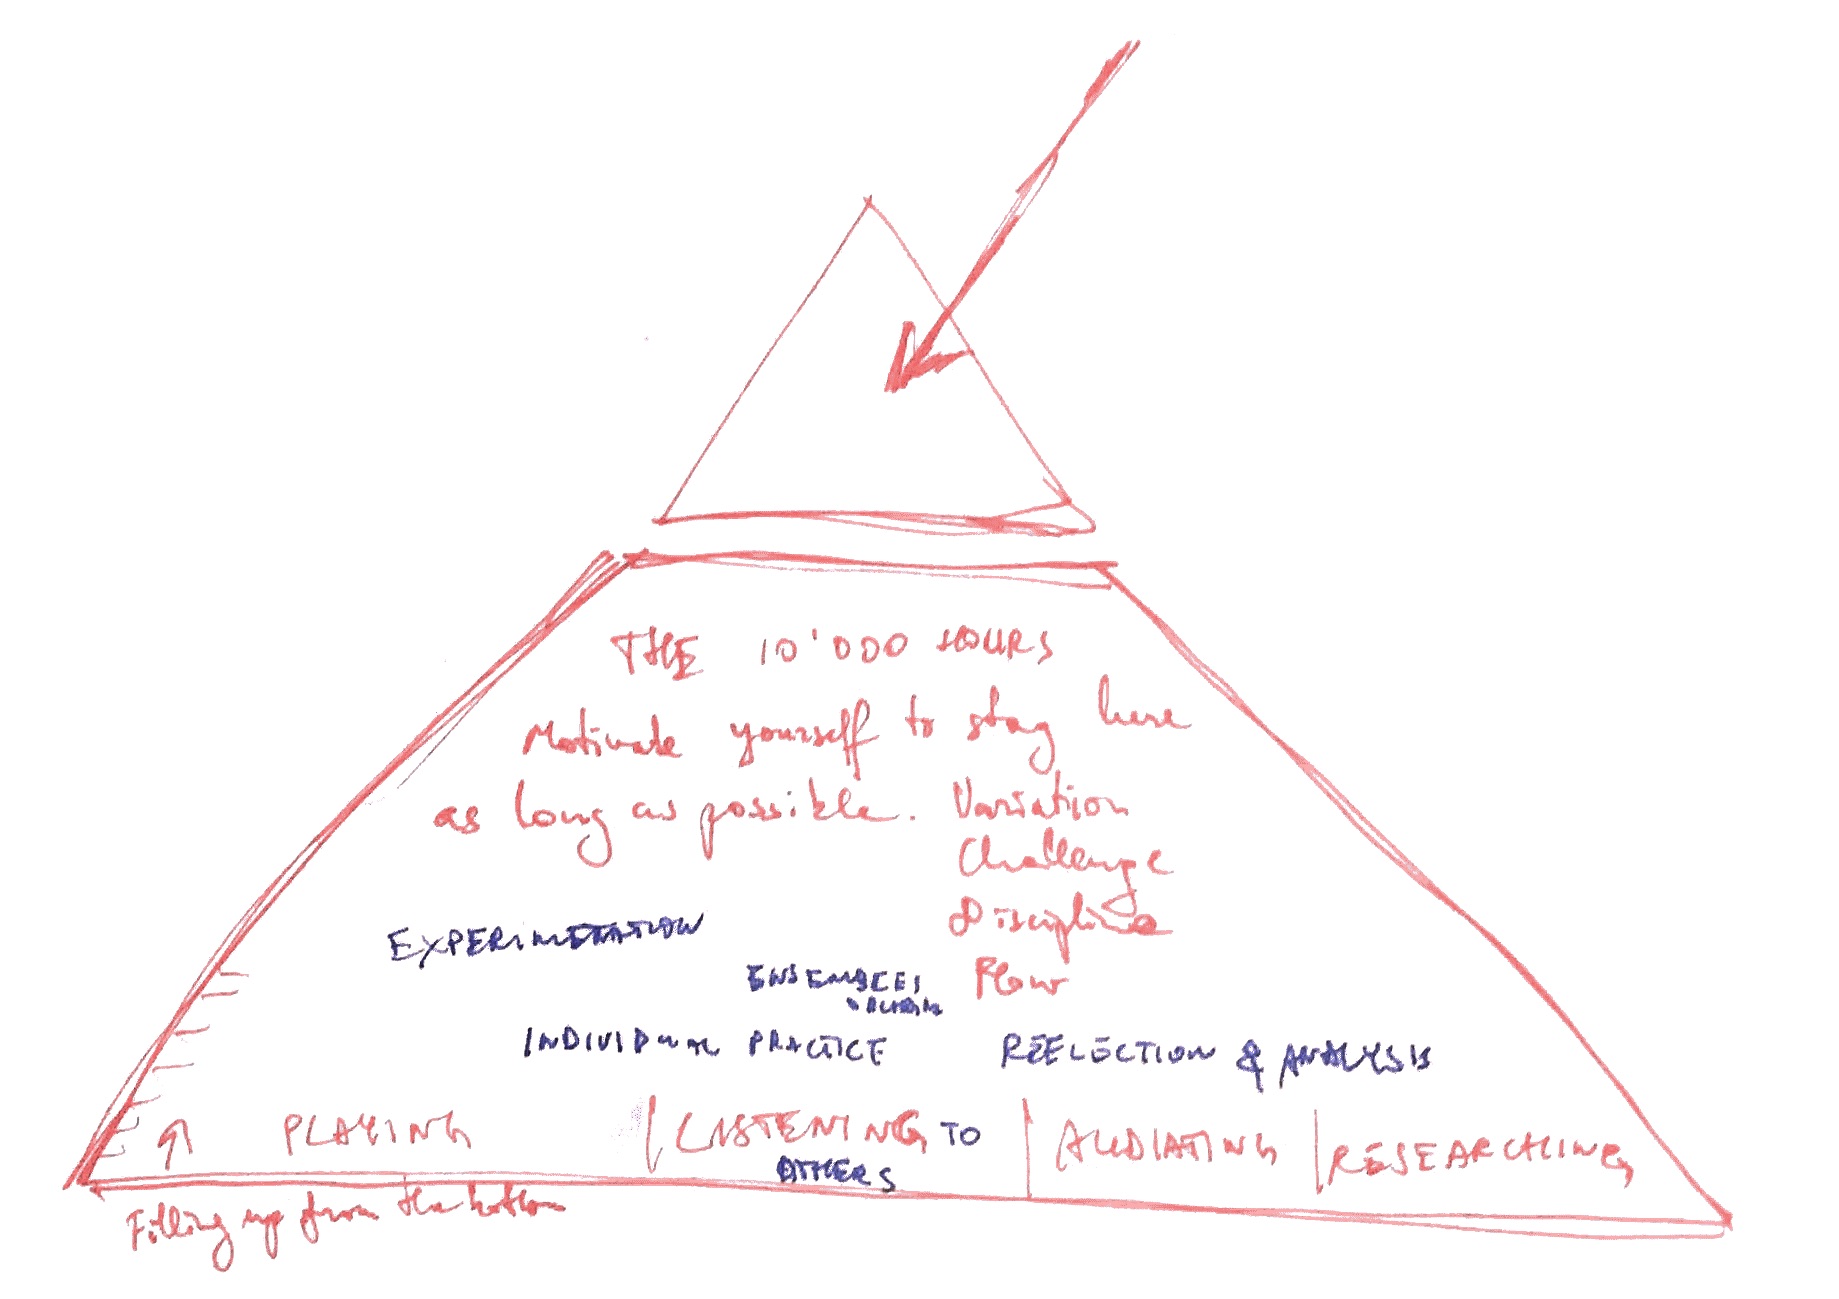 THE 10'000 HOURS
Motivate yourself to stay here
as long as possible. Variation
Challenge
Discipline
Flow
EXPERIMENTATION
ENSEMBLES
INDIVIDUAL PRACTICE
REFLECTION & ANALYSIS
PLAYING
LISTENING TO
OTHERS
AUDIATING
RESEARCHING
Filling up from the bottom